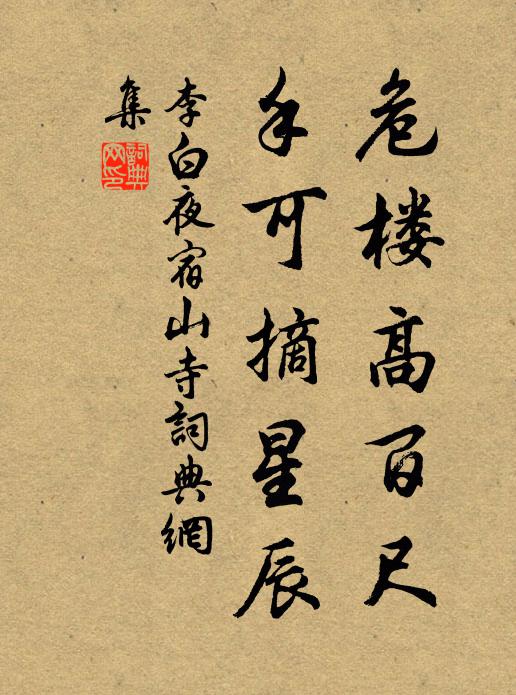 危楼高百尺
手可摘星辰
李白夜宿山寺詞典網
集
詞典網印